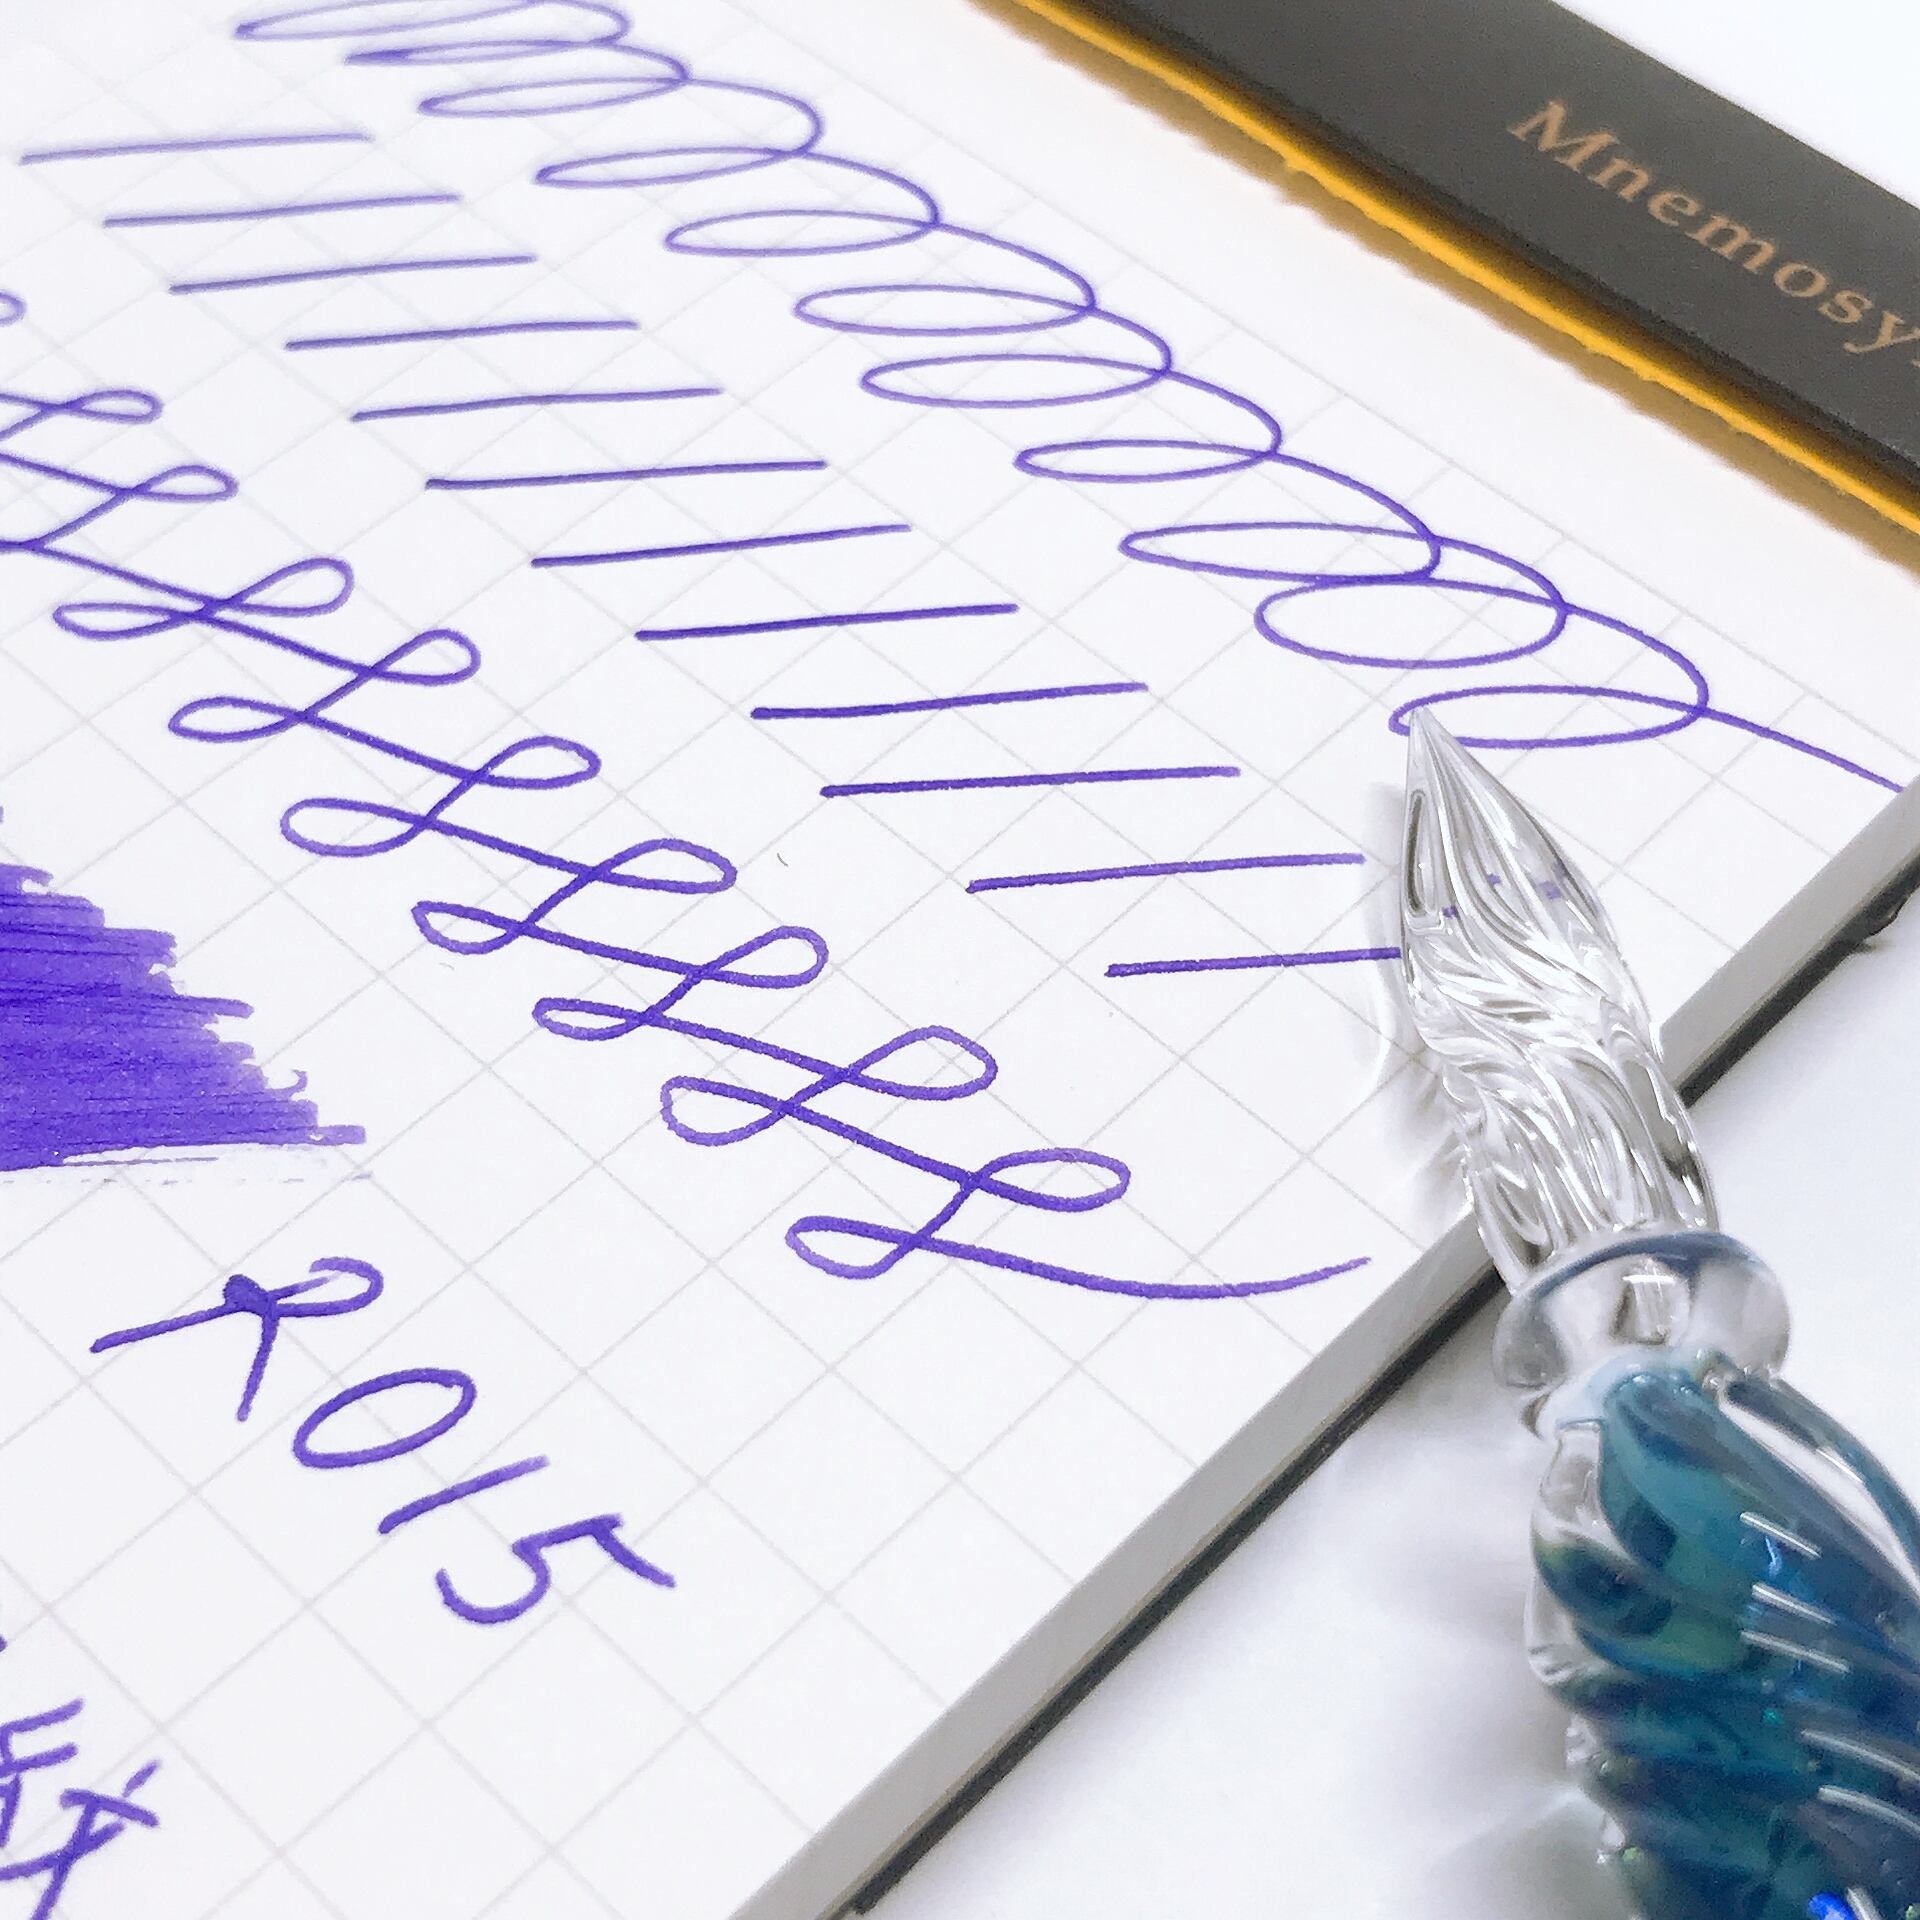 Mnemosy
R015